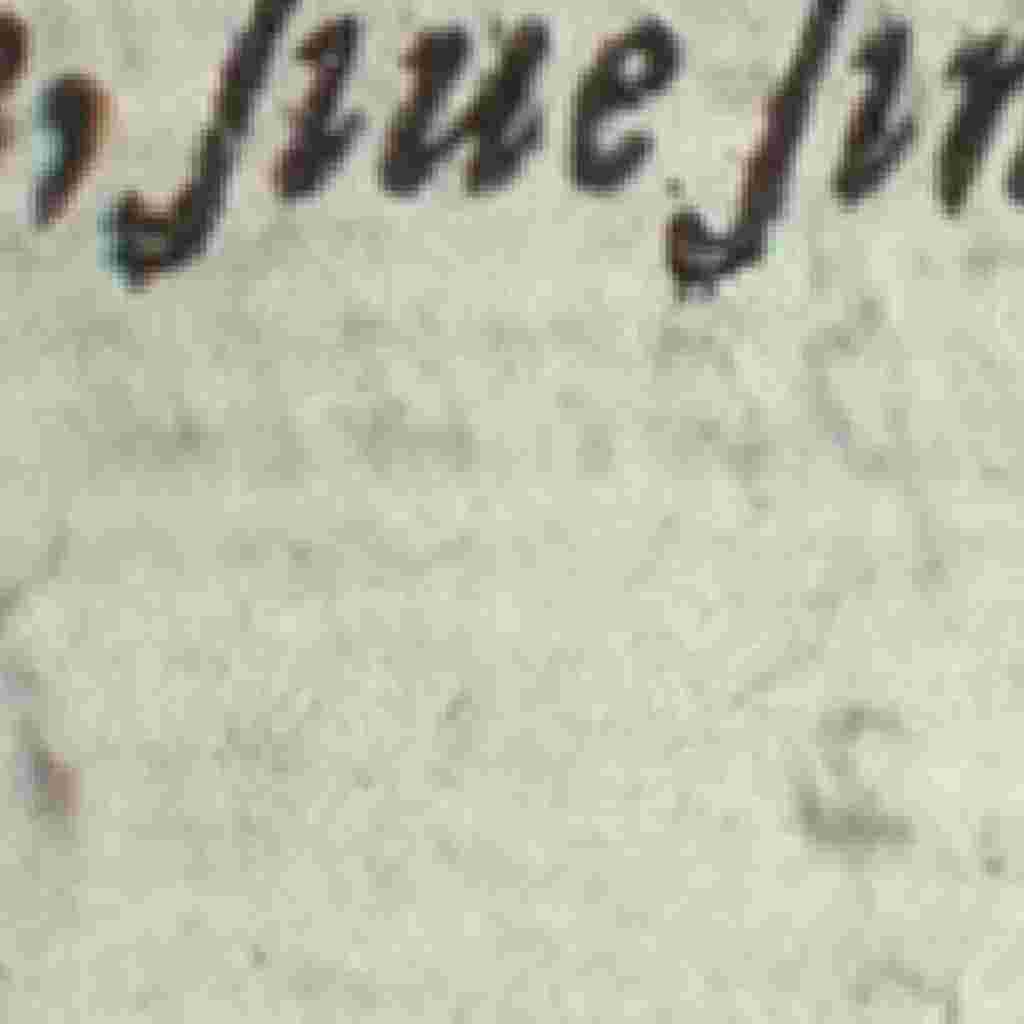 , ſiue ſin